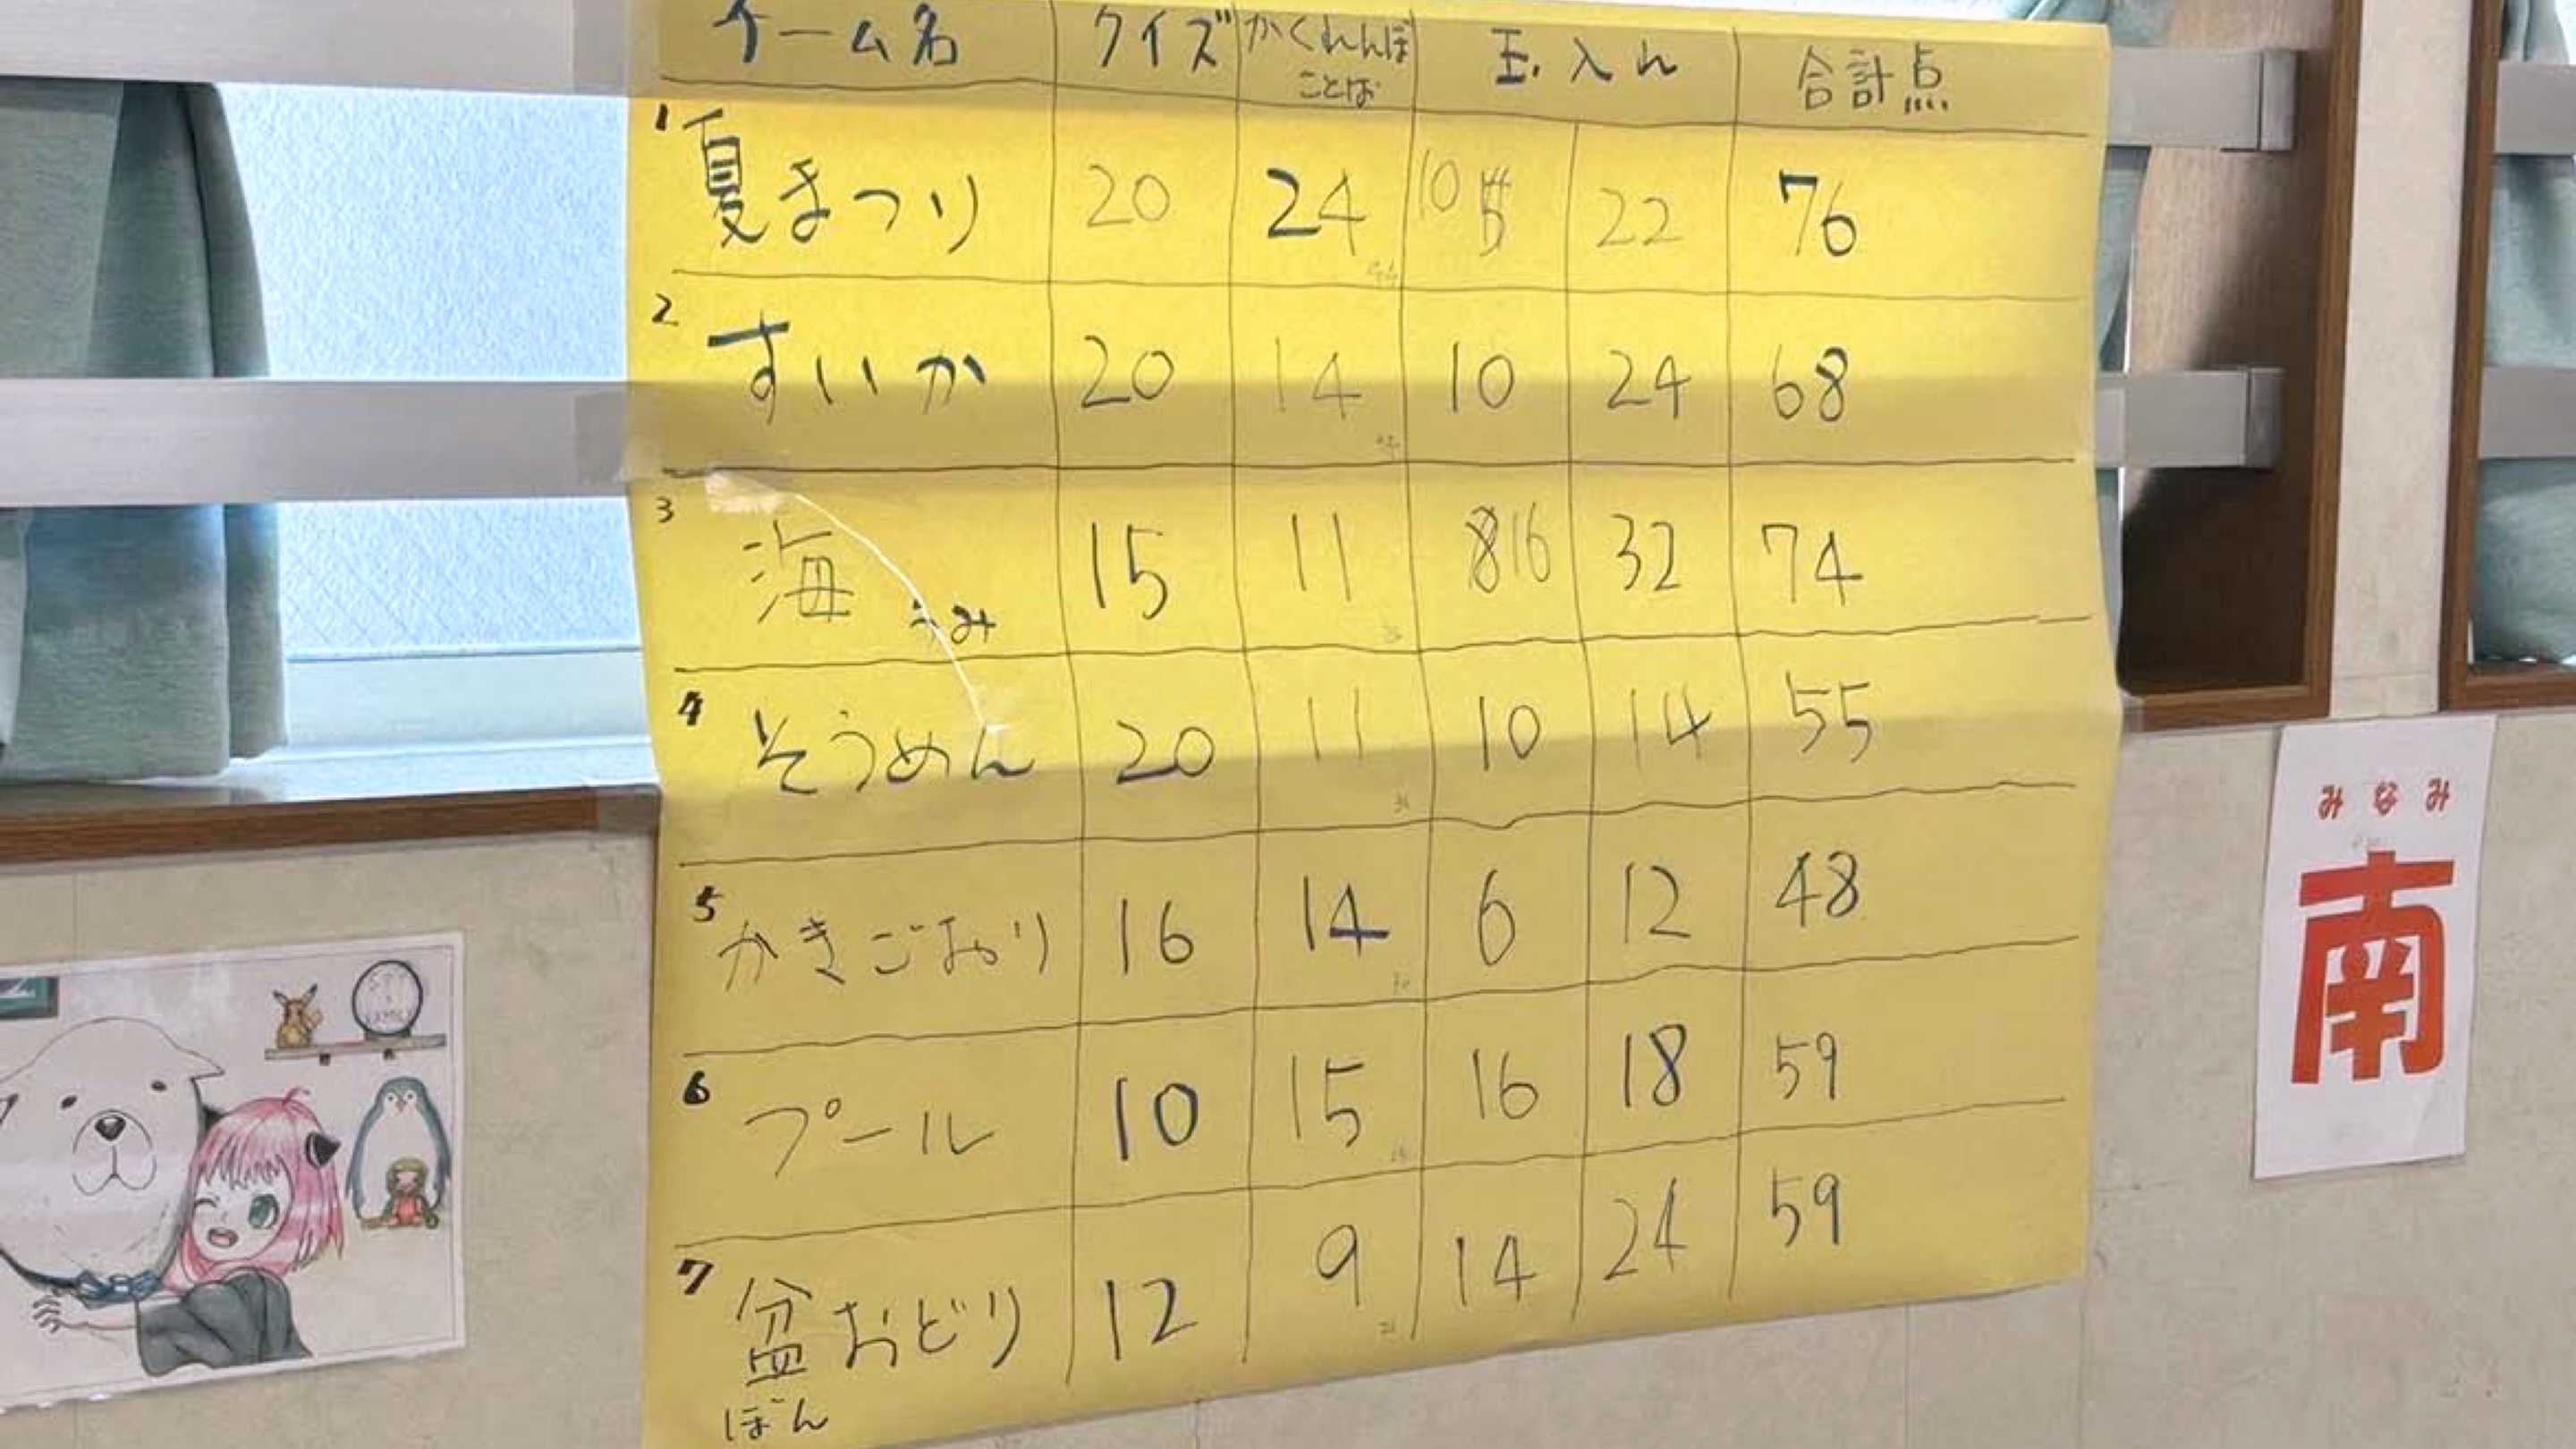 チーム名 クイズ かくれんぼことば 玉入れ 合計点
1 夏まつり 20 24 10 22 76
2 すいか 20 14 10 24 68
3 海 うみ 15 11 16 32 74
4 そうめん 20 11 10 14 55
5 かきごおり 16 14 6 12 48
6 プール 10 15 16 18 59
7 盆おどり 12 9 14 24 59
ぼん
みなみ
南